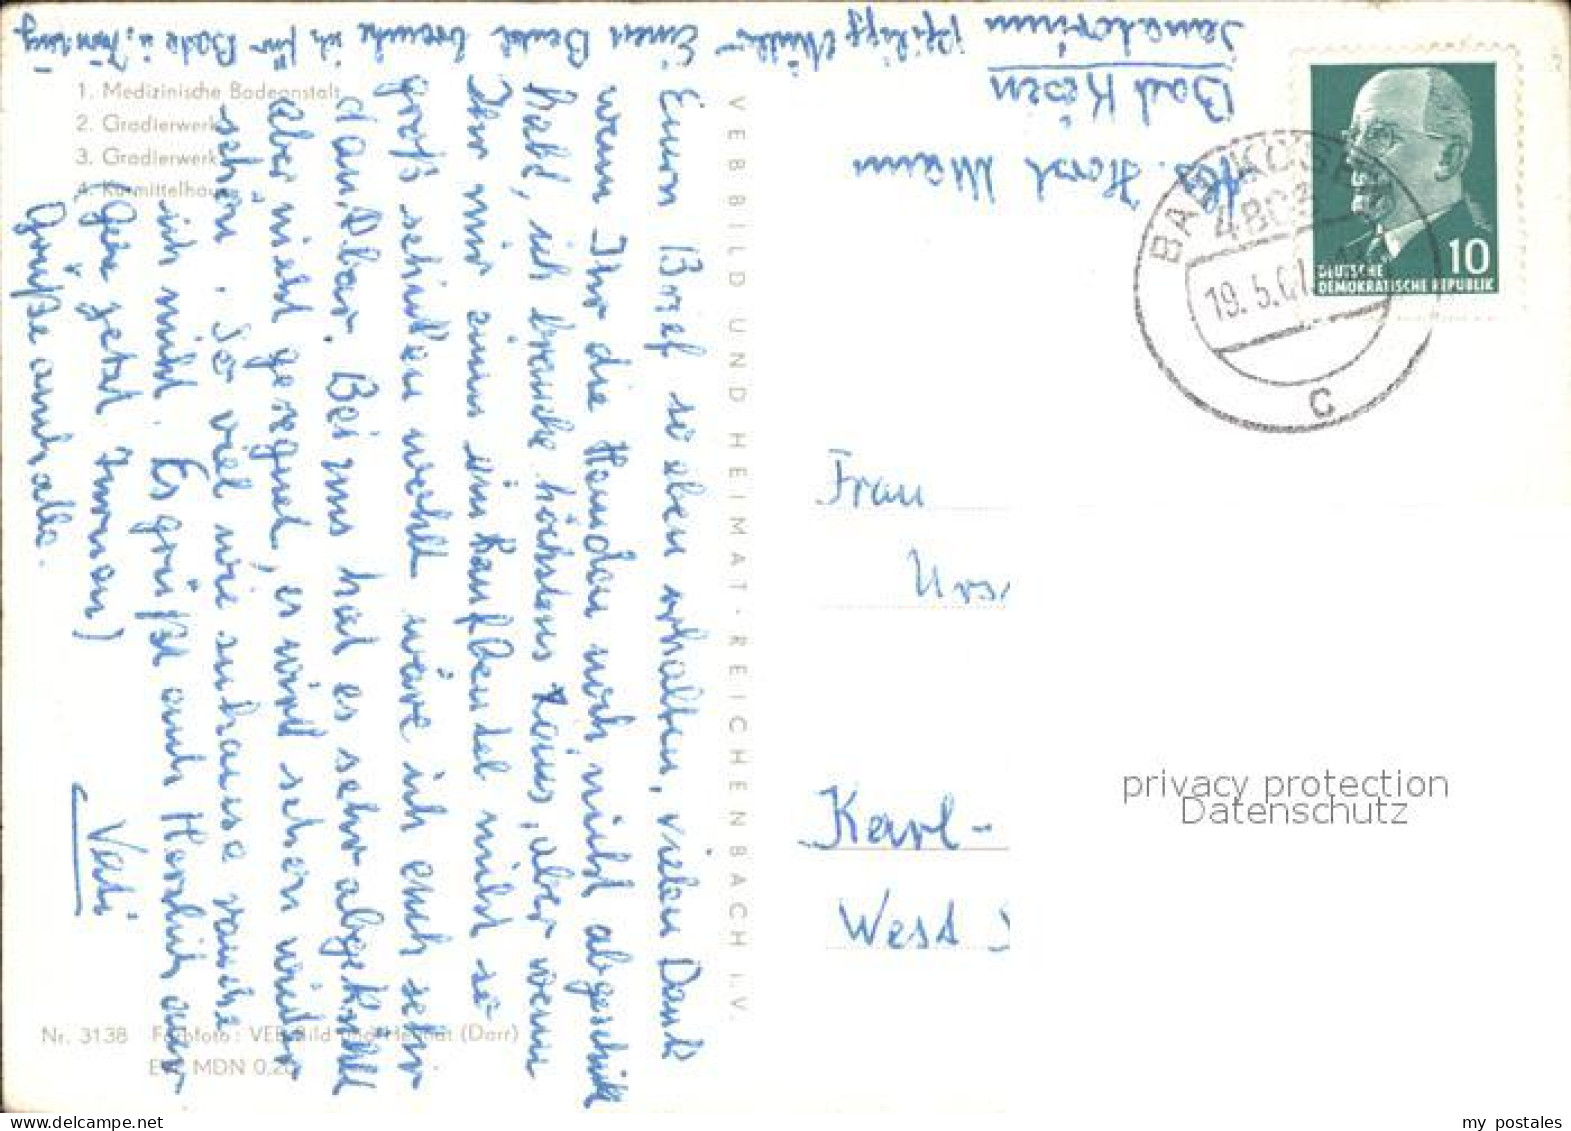 1. Medizinische Badeanstalt
2. Gradierwerk
3. Gradierwerk
4. Kurmittelhaus
Euren Brief soeben erhalten, vielen Dank
wenn Ihr die Hemden noch nicht abgeschickt
habt, ich brauche höchstens 1, aber wenn
Ihr mir einen einkaufbeutel mit so
groß schicken wehlt wäre ich euch sehr
dankbar. Bei uns hat es sehr abgekühlt
aber nicht geregnet, es wird schon wieder
schön. So viel wie zuhause rauche
ich nicht. Es grüßt euch Herzlich der
(Gehe jetzt Turnen)
Grüße auch alle.
Vati
Einen Beutel brauche ich für Bade u. Turnzeug
VEB BILD UND HEIMAT · REICHENBACH I.V.
Nr. 3138 Farbfoto: VEB Bild und Heimat (Darr)
EVP MDN 0,20
Abs. Horst Mann
Bad Kösen
Sanatorium Philipp Müller
DEUTSCHE
DEMOKRATISCHE REPUBLIK
10
BAD KÖSEN
19.5.67
c
Frau
Urs
Karl-
West
privacy protection
Datenschutz
my postales